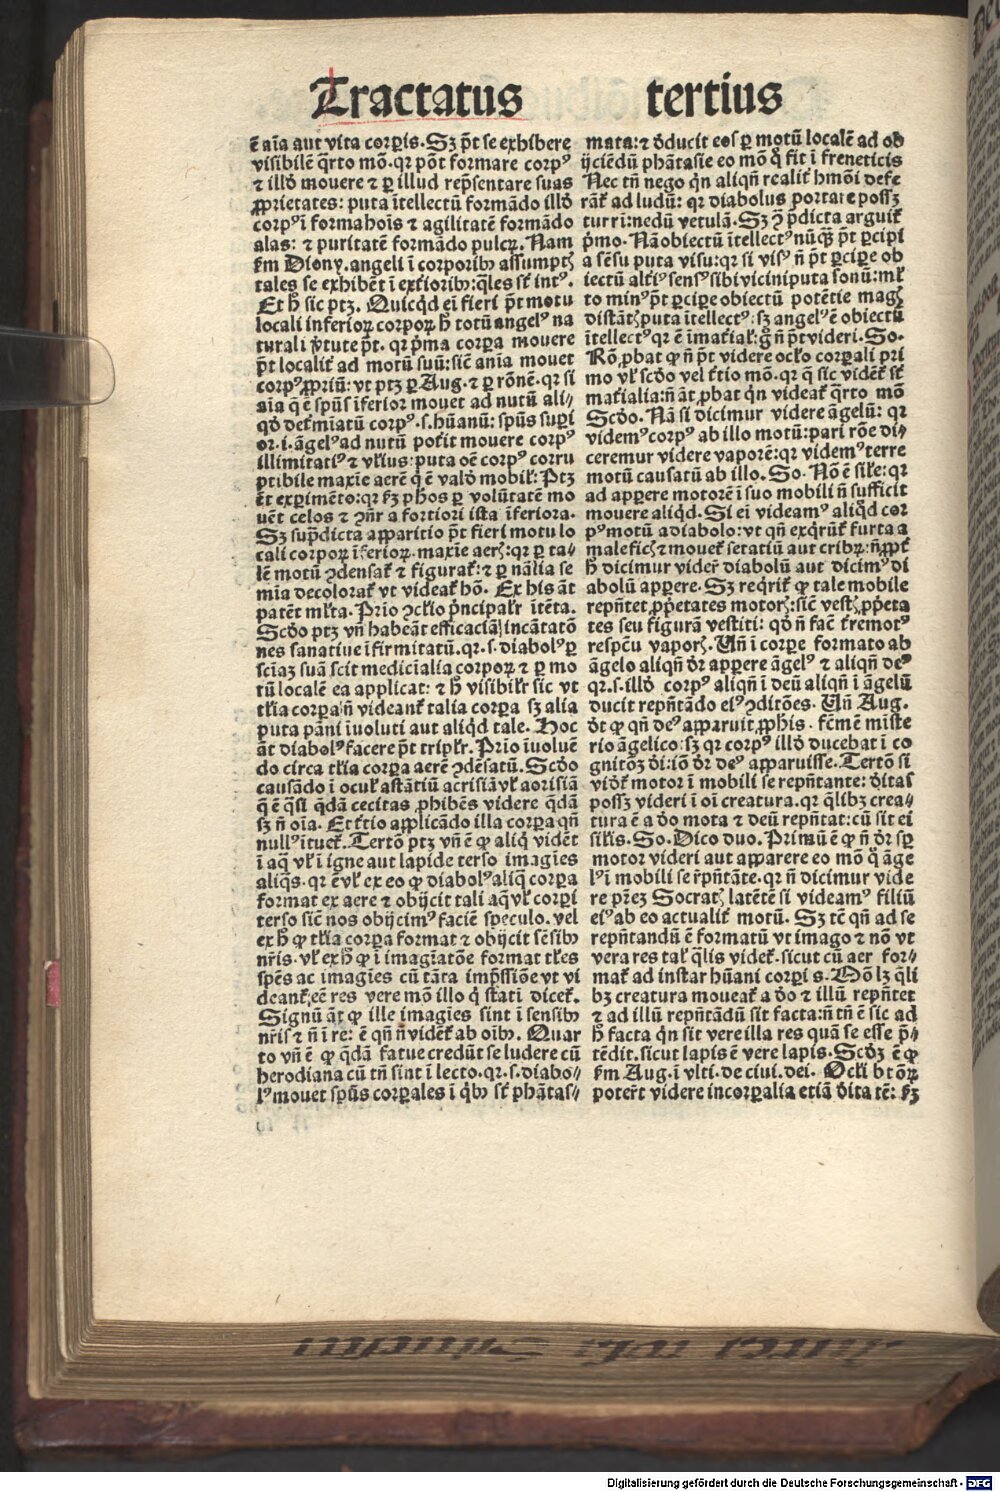 Tractatus tertius
ē aīa aut vita corpis. Sʒ pōt se exhibere
visibilē q̄rto mō. qr pōt formare corpꝰ
⁊ illđ mouere ⁊ ꝑ illud rep̄sentare suas
ꝓprietates: puta ītellectū formādo illđ
corpꝰ ī forma hoīs ⁊ agilitatē formādo
alas: ⁊ puritatē formādo pulcꝝ. Nam
ẜm Diony. angeli ī corporibꝰ assumptꝭ
tales se exhibēt ī exterioribꝰ: q̄les st̄ intꝰ.
locali inferioꝝ corpoꝝ h̄ totū angelꝰ na
turali ꝟtute pōt. qr pͥma corpa mouere
pōt localiꝭ ad motū suū: sic̄ anīa mouet
corpꝰ ꝓpriū: vt ptꝫ ꝑ Aug. ⁊ ꝑ rōnē. qr si
aīa q̄ ē spūs īferior mouet ad nutū ali-
illimitatiꝰ ⁊ vlꝰius: puta oē corpꝰ corru
ptibile maxīe aerē q̄ ē valđ mobilꝭ: Ptꝫ
uēt celos ⁊ ꝯn̄r a fortiori ista īferiora.
Sʒ sup̄dicta apparitio pōt fieri motu lo
cali corpoꝝ īferioꝝ. maxīe aerꝭ: qr ꝑ ta-
patēt ml̄ta. Prīo ꝯclīo pͥncipalꝭr ītēta.
nes sanatiue īfirmitatū. qr. s. diabolꝰ ꝑ
scīaꝫ suā scit medicīalia corpoꝝ ⁊ ꝑ mo
tū localē ea applicat: ⁊ h̄ visibilꝭr sic vt
puta pāni īuoluti aut aliqͥd tale. Hoc
āt diabolꝰ facere pōt triplꝭr. Prīo īuoluē
do circa tľia corpa aerē ꝯdēsatū. Scđo
causādo ī oculꝭ astātiū acrisiā vľ aorisiā
q̄ ē q̄si q̄dā cecitas ꝓhibēs videre q̄dā
sʒ n̄ oīa. Et t̄tio applicādo illa corpa qn̄
ī aq̄ vľ ī igne aut lapide terso imagīes
aliq̄s. qr ē vľ ex eo ꝙ diabolꝰ aliq̄ corpa
format ex aere ⁊ obijcit tali aq̄ vľ corpi
terso sic̄ nos obijcimꝰ faciē speculo. vel
ex h̄ ꝙ tľia corpa format ⁊ obijcit sēsibꝰ
nr̄is. vľ ex h̄ ꝙ ī imagīatōe format tľes
spēs ac imagīes cū tāta imp̄ssiōe vt vi
deant̄ eē res vere mō illo q̇ statī dicet̄.
Signū āt ꝙ ille imagīes sint ī sensibꝰ
nr̄is ⁊ n̄ ī re: ē qn̄ n̄ vidēt̄ ab oībꝰ. Quar
to vn̄ ē ꝙ q̄dā fatue credūt se ludere cū
herodiana cū tn̄ sint ī lecto. qr. s. diabo-
lꝰ mouet spūs corpales ī qͥbꝰ st̄ phātas-
mata: ⁊ đducit eos ꝑ motū localē ad ob
ijciēdū phātasie eo mō q̇ fit ī freneticis
Nec tn̄ nego qͥn aliqn̄ realitꝭ hmōi defe
rāt̄ ad ludū: qr diabolus portare possꝫ
turri: nedū vetulā. Sʒ ꝯ p̄dicta arguit̄
pͥmo. Nā obiectū ītellectꝰ nūq̄ʒ pōt ꝑcipi
a sēsu puta visu: qr si visꝰ n̄ pōt ꝑcipe ob
iectū altiꝰ sensꝰ sibi vicini puta sonū: ml̄
to minꝰ pōt ꝑcipe obiectū potētie magꝭ
distātꝭ puta ītellectꝰ: sʒ angelꝰ ē obiectū
ītellectꝰ qr ē īmat̄ialꝭ: gͦ n̄ pōt videri. So.
Rō. ꝓbat ꝙ n̄ pōt videre oclo corpali pri
mo vľ scđo vel t̄tio mō. qr q̄ sic vidēt̄ st̄
mat̄ialia: n̄ āt ꝓbat qͥn videat̄ q̄rto mō
Scđo. Nā si dicimur videre āgelū: qr
videmꝰ corpꝰ ab illo motū: pari rōe di-
ceremur videre vaporē: qr videmꝰ terre
motū causatū ab illo. So. Nō ē sil̄e: qr
ad apperere motorē ī suo mobili n̄ sufficit
mouere aliqd. Si ei videamꝰ aliqd cor
pꝰ motū a diabolo: vt qn̄ exqͥrūt̄ furta a
h̄ dicimur vider̄ diabolū aut dicimꝰ di
abolū apperere. Sʒ reqͥrit̄ ꝙ tale mobile
repn̄tet ꝓpͥetates motorꝭ: sic̄ vestꝭ ꝓpͥeta
tes seu figurā vestiti: qđ n̄ fac̄ t̄remotꝰ
respc̄u vaporꝭ. Un̄ ī corpe formato ab
āgelo aliqn̄ đr apperere āgelꝰ ⁊ aliqn̄ deꝰ
qr. s. illđ corpꝰ aliqn̄ ī deū aliqn̄ ī āgelū
ducit repn̄tādo eiꝰ ꝯditōes. Un̄ Aug.
đt ꝙ qn̄ deꝰ apparuit ꝓphis. fc̄m ē mīste
rio āgelico: sʒ qr corpꝰ illđ ducebat ī co
gnitōʒ dī: iō đr deꝰ apparuisse. Tertō si
vidēt̄ motor ī mobili se repn̄tante: đitas
possꝫ videri ī oī creatura. qr q̄libꝫ crea-
tura ē a đo mota ⁊ deū repn̄tat: cū sit ei
sil̄is. So. Dico duo. Primū ē ꝙ n̄ đr sꝑ
motor videri aut apparere eo mō q̇ āge
lꝰ ī mobili se repn̄tāte. qr n̄ dicimur vide
re pr̄eʒ Socratꝭ latētē si videamꝰ filiū
eiꝰ ab eo actualitꝭ motū. Sʒ tē qn̄ ad se
repn̄tandū ē formatū vt imago ⁊ nō vt
vera res talꝭ q̄lis videt̄. sicut cū aer for-
mat̄ ad instar hūani corpis. Mō lʒ q̄li
bʒ creatura moueat̄ a đo ⁊ illū repn̄tet
⁊ ad illū repn̄tādū sit facta: n̄ tn̄ ē sic ad
h̄ facta qͥn sit vere illa res quā se esse p̄-
tēdit. sicut lapis ē vere lapis. Scđʒ ē ꝙ
ẜm Aug. ī vlti. de ciui. dei. Oclī btōꝝ
potert̄ videre incorpalia etiā đitatē: ẜʒ
Digitalisierung gefördert durch die Deutsche Forschungsgemeinschaft - DFG